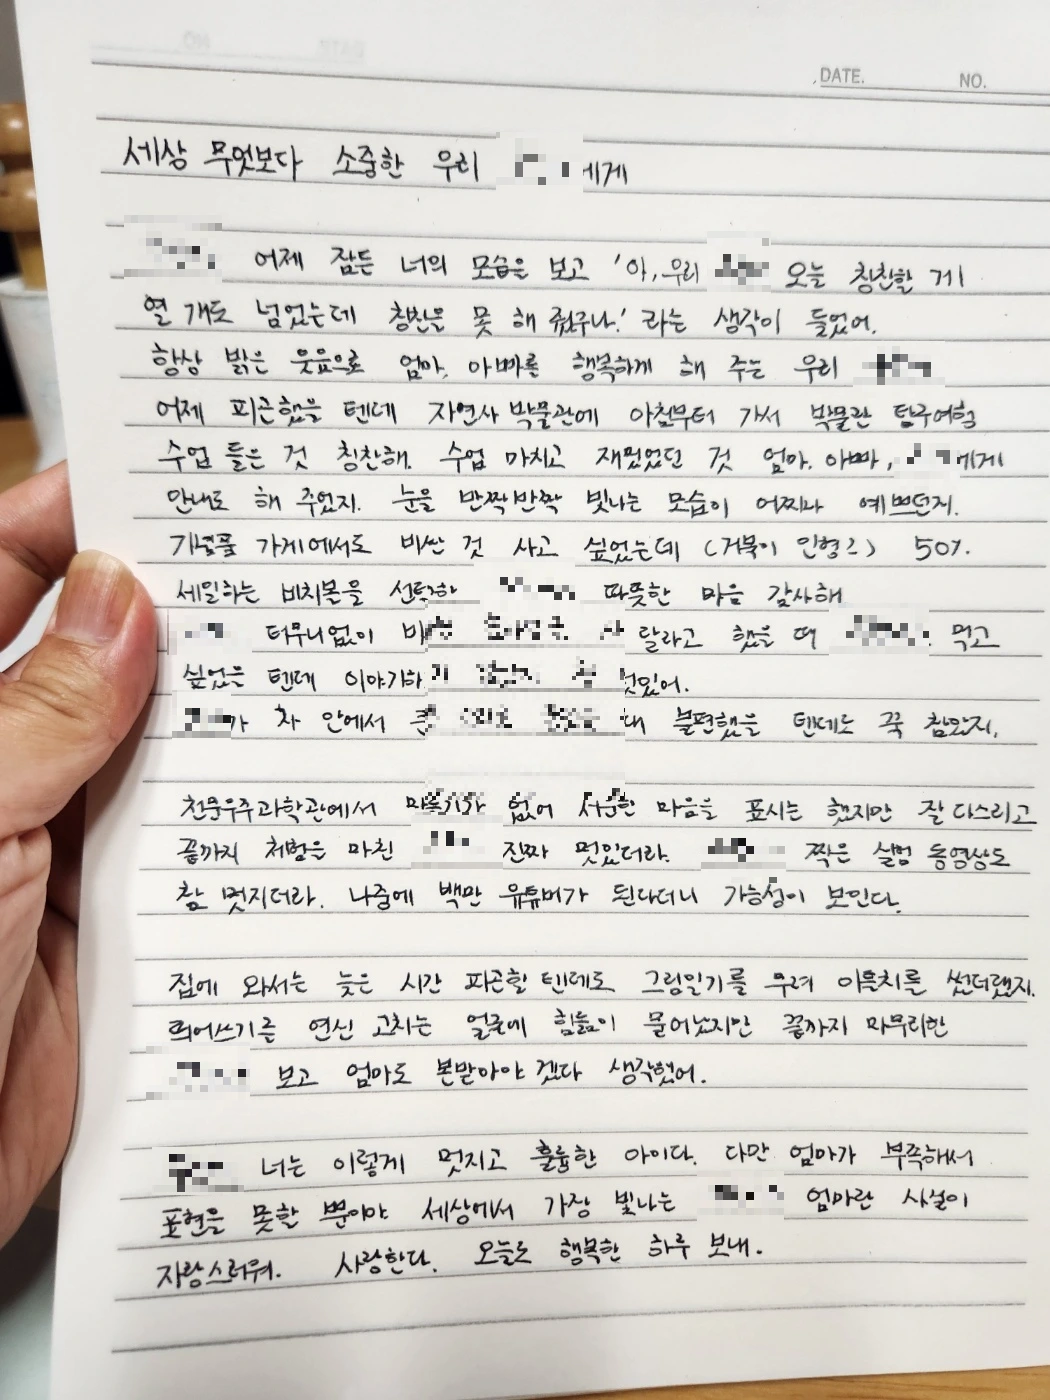 DATE. NO.
세상 무엇보다 소중한 우리 에게
어제 잠든 너의 모습을 보고 '아, 우리 오늘 칭찬할 게
열 개도 넘었는데 칭찬을 못 해 줬구나.' 라는 생각이 들었어.
항상 밝은 웃음으로 엄마, 아빠를 행복하게 해 주는 우리
어제 피곤했을 텐데 자연사 박물관에 아침부터 가서 박물관 탐구여행
수업 들은 것 칭찬해. 수업 마치고 재밌었던 것 엄마, 아빠, 에게
안내도 해 주었지. 눈을 반짝반짝 빛나는 모습이 어찌나 예쁘던지.
기념품 가게에서도 비싼 것 사고 싶었는데 (거북이 인형?) 50%
세일하는 비치볼을 선택한 따뜻한 마음 감사해
터무니없이 달라고 했을 때 먹고
싶었을 텐데 이야기하
가 차 안에서 큰 대 불편했을 텐데도 꾹 참았지.
천문우주과학관에서 없어 서운한 마음을 표시는 했지만 잘 다스리고
끝까지 체험을 마친 진짜 멋있더라. 찍은 실험 동영상도
참 멋지더라. 나중에 백만 유튜버가 된다더니 가능성이 보인다.
집에 와서는 늦은 시간 피곤할 텐데도 그림일기를 무려 이틀치를 썼더랬지.
띄어쓰기를 연신 고치는 얼굴에 힘듦이 묻어났지만 끝까지 마무리한
보고 엄마도 본받아야 겠다 생각했어.
너는 이렇게 멋지고 훌륭한 아이다. 다만 엄마가 부족해서
표현을 못할 뿐이야 세상에서 가장 빛나는 엄마란 사실이
자랑스러워. 사랑한다. 오늘도 행복한 하루 보내.